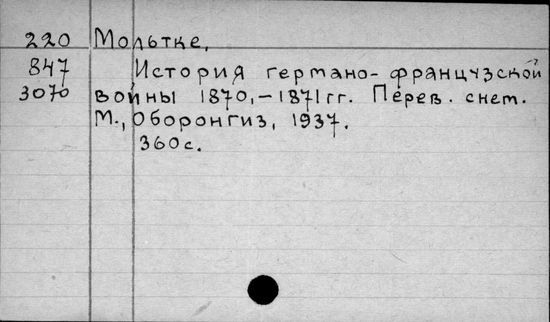 220 Мольтке,
847 История германо-французской
3070 войны 1870,-1871гг. Перев. с нет.
М., Оборонгиз, 1937.
360с.